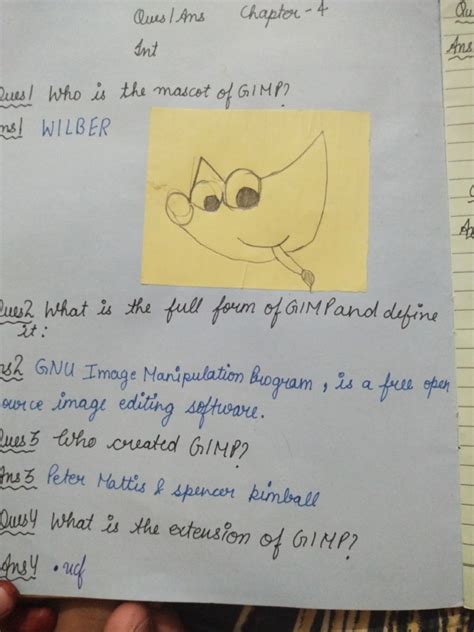 Ques/Ans Chapter-4
Int
Ques1 Who is the mascot of GIMP?
Ans1 WILBER
Ques2 What is the full form of GIMP and define
it:
Ans2 GNU Image Manipulation Program, is a free open
source image editing software.
Ques3 Who created GIMP?
Ans3 Peter Mattis & spencer kimball
Ques4 What is the extension of GIMP?
Ans4 .ucf
Qu
Ans